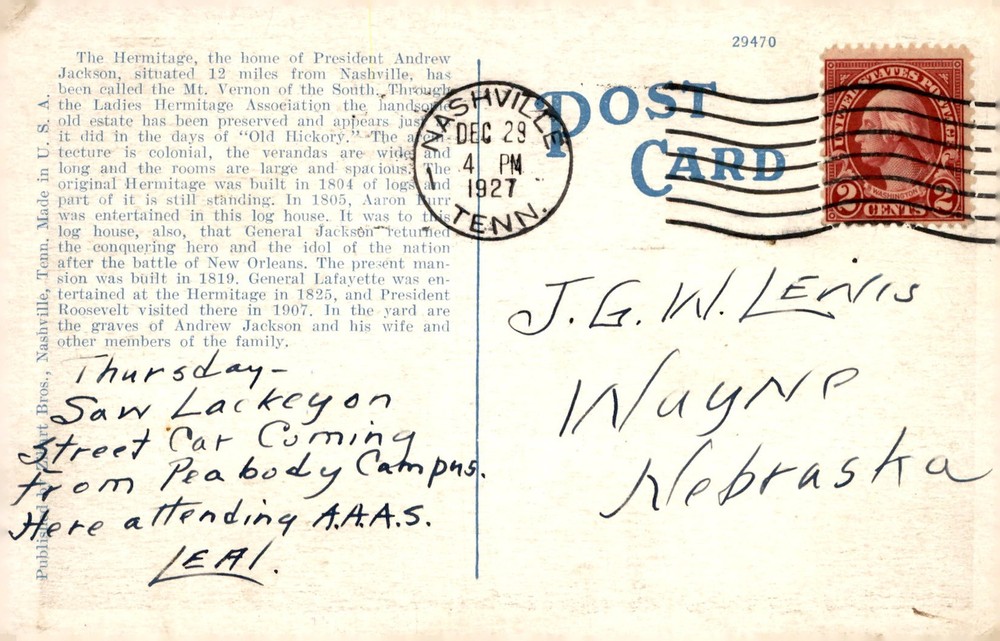 29470
The Hermitage, the home of President Andrew
Jackson, situated 12 miles from Nashville, has
been called the Mt. Vernon of the South. Through
the Ladies Hermitage Association the handsome
old estate has been preserved and appears just as
it did in the days of "Old Hickory." The archi-
tecture is colonial, the verandas are wide and
long and the rooms are large and spacious. The
original Hermitage was built in 1804 of logs and
part of it is still standing. In 1805, Aaron Burr
was entertained in this log house. It was to this
log house, also, that General Jackson returned
the conquering hero and the idol of the nation
after the battle of New Orleans. The present man-
sion was built in 1819. General Lafayette was en-
tertained at the Hermitage in 1825, and President
Roosevelt visited there in 1907. In the yard are
the graves of Andrew Jackson and his wife and
other members of the family.
Published by Bros., Nashville, Tenn. Made in U. S. A.
Thursday-
Saw Lackey on
Street Car Coming
from Peabody Campus.
Here attending A.A.A.S.
LEAI.
POST
CARD
NASHVILLE
DEC 29
4 PM
1927
TENN.
UNITED STATES POSTAGE
WASHINGTON
2 CENTS 2
J. G. W. LEWIS
Wayne
Nebraska